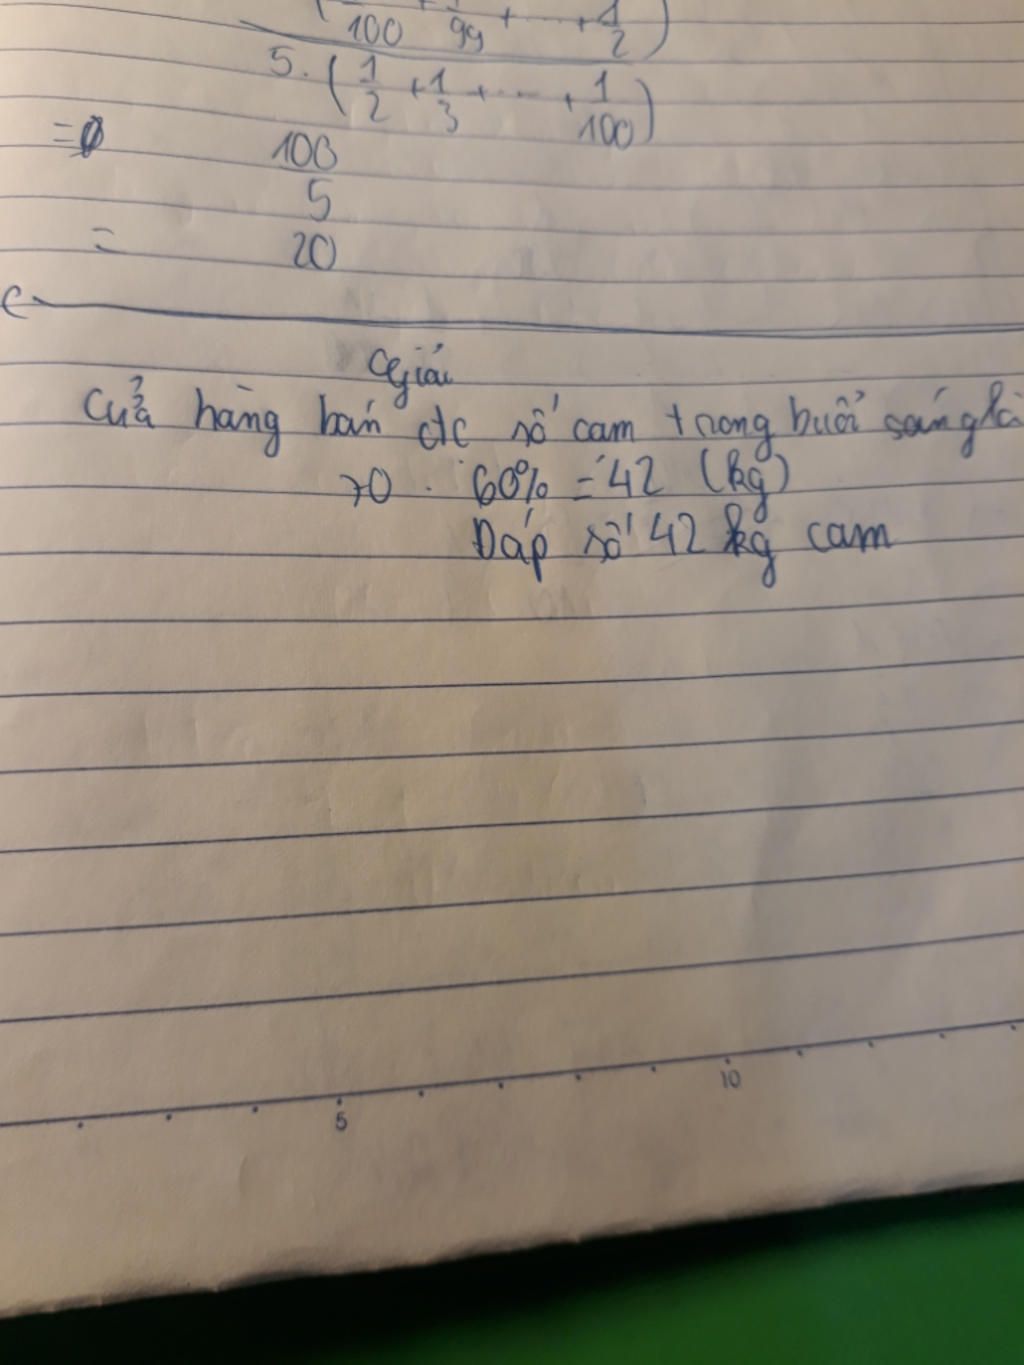 100 99 + ... + 1/2)
5. (1/2 + 1/3 + ... + 1/100)
= 100
5
= 20
Giải
Cửa hàng bán đc số cam trong buổi sáng là
70 . 60% = 42 (kg)
Đáp số 42 kg cam
5
10